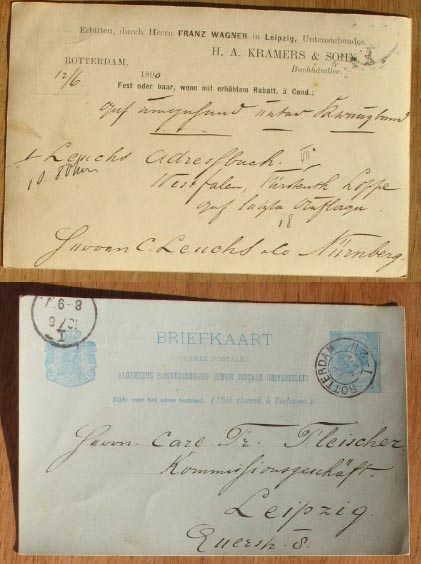 Erbitten, durch Herrn FRANZ WAGNER in Leipzig, Untenstehendes.
H. A. KRAMERS & SOHN
Buchhändler.
ROTTERDAM, 12/6 1890
Fest oder baar, wenn mit erhöhtem Rabatt, à Cond.:
auf umgehend unter Kreuzband
1 Leuchs Adressbuch. VIIa
Westfalen, Fürstenth Lippe
auf letzte Auflage.
18
Herren C. Leuchs & Co Nürnberg.
8-9 V.
13/6
I
BRIEFKAART
(CARTE POSTALE)
ALGEMEENE POSTVEREENIGING (UNION POSTALE UNIVERSELLE)
Zijde voor het adres bestemd. (Côté réservé à l'adresse.)
ROTTERDAM
Herrn Carl Fr. Fleischer
Kommissionsgeschäft.
Leipzig.
Querstr. 8.